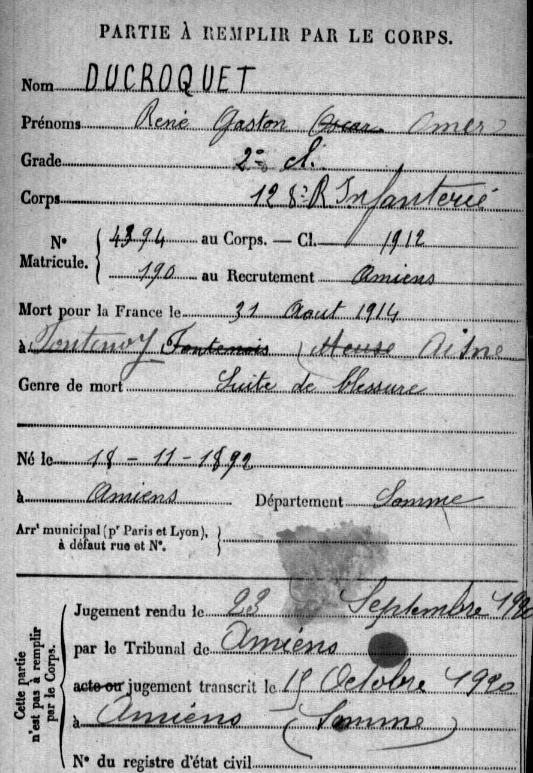 PARTIE À REMPLIR PAR LE CORPS.
Nom DUCROQUET
Prénoms René Gaston Oscar Omer
Grade 2e cl.
Corps 128e R Infanterie
Nº Matricule. 4394 au Corps. — Cl. 1912
190 au Recrutement Amiens
Mort pour la France le 31 Aout 1914
à Fontenoy Fontenois (Meuse Aisne
Genre de mort Suite de blessure
Né le 18 - 11 - 1892
à Amiens Département Somme
Arrt municipal (pr Paris et Lyon),
à défaut rue et Nº.
Cette partie n'est pas à remplir par le Corps.
Jugement rendu le 23 Septembre 1920
par le Tribunal de Amiens
acte ou jugement transcrit le 15 Octobre 1920
à Amiens (Somme)
Nº du registre d'état civil